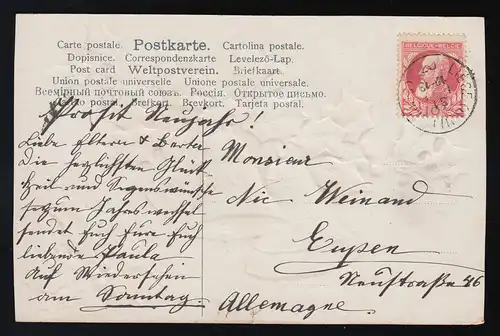 Carte postale. Postkarte. Cartolina postale.
Dopisnice. Correspondenzkarte Levelező-Lap.
Post card Weltpostverein. Briefkaart.
Union postale universelle Unione postale universale.
Всемірный почтовый союзъ. Россія. Открытое письмо.
Brefkort. Brevkort. Tarjeta postal.
BELGIQUE-BELGIE
Prosit Neujahr!
Liebe Eltern &
Die herzlichsten Glück
&
Segenswünsche
zum Jahreswechsel
sendet Euch Eure Euch
liebende Paula
Auf Wiedersehen
am Sonntag.
Monsieur
Nic Weinand
Eupen
Neustraße 46
Allemagne.